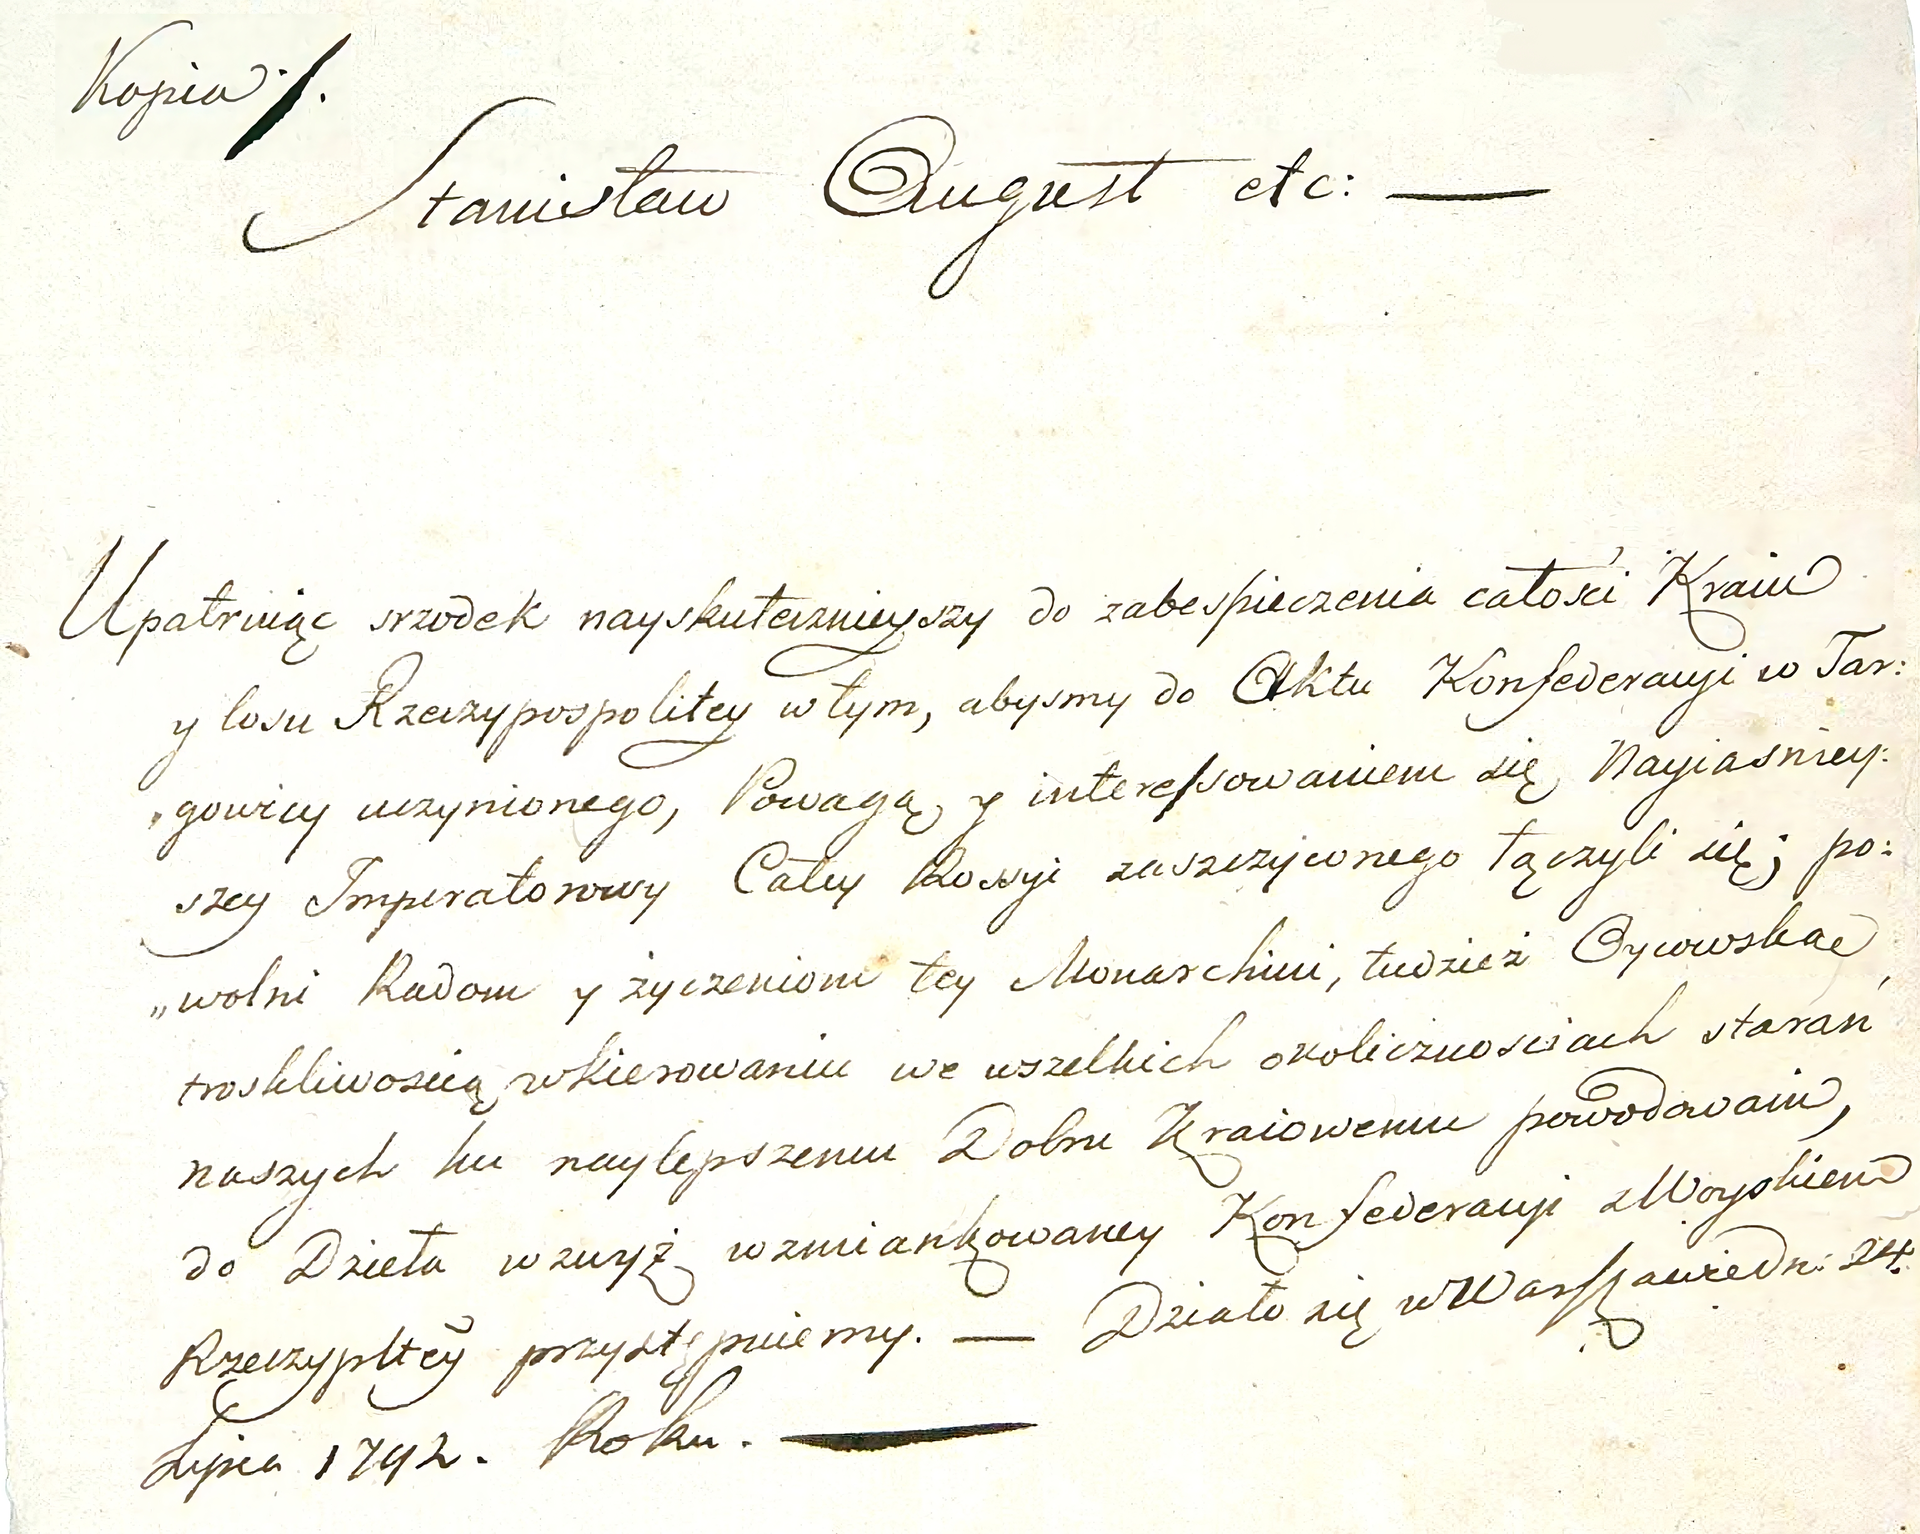 Kopia ∫.
Stanisław August etc: —
Upatruiąc srzodek nayskutecznieyszy do zabespieczenia całości Kraiu
y losu Rzeczypospolitey w tym, abysmy do Aktu Konfederacyi w Tar:
„gowicy uczynionego, Powagą y interessowaniem się Nayiasniey:
szey Imperatorowy Całey Rossyi zaszczyconego łączyli się; po:
„wolni Radom y życzeniom tey Monarchini, tudzież Oycowską
troskliwoscią w kierowaniu we wszelkich okolicznosciach starań
naszych ku naylepszemu Dobru Kraiowemu powodowani,
do Dzieła wzwyż wzmiankowaney Konfederacyi z Woyskiem
Rzeczypltey przystępuiemy. — Działo się w Warszawie Dn: 24.
Lipca 1792. Roku. —